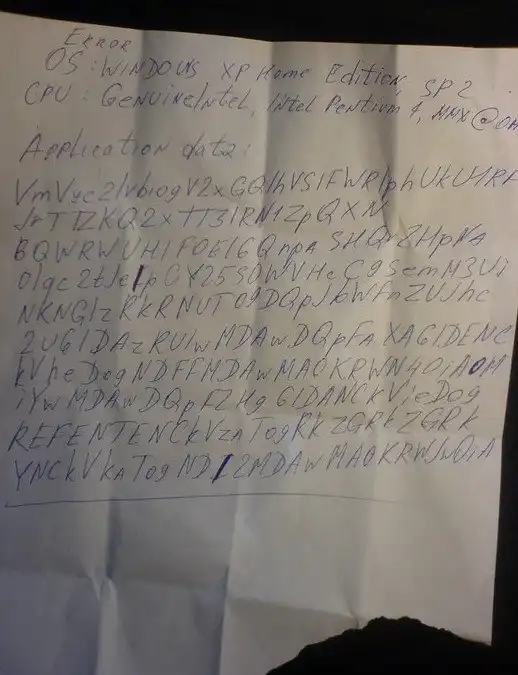 Error
OS: WINDOWS XP Home Edition, SP2
CPU: GenuineIntel, Intel Pentium 4, MMX @ 0H
Application data:
VmVyc2lvbiogV2xGQlhVSlFWRlphUkU1RF
JrTTZKQ2xTT3lRN1ZpQXN
BQWRWUH1FOEl6QnpA SHQrZHpNA
Olgc2tJelpCY25SOWVHcC9SemM3Ui
NKNGlzRkRNUTo9DQpJbWFnZUJhc
2U6IDAzRUIwMDAwDQpFAXA6IDENC
kVheDogNDFFMDAwMA0KRWN4OiAOM
iYwMDAwDQpFZHg6IDANCkVieDog
REFENTENCkVzaTogRkZGRkZGRk
YNCkVkaTogNDI2MDAwMA0KRWJwOiA